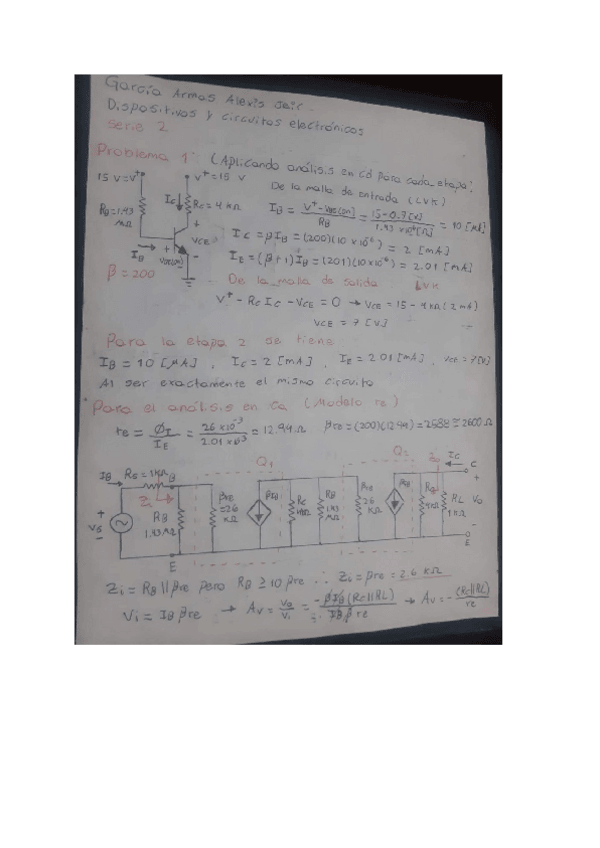 García Armas Alevis Jair
Dispositivos y circuitos electrónicos
serie 2
Problema 1: (Aplicando análisis en cd para cada etapa)
De la malla de entrada (LVK)
15 V=V⁺
V⁺=15 V
RB=1.43 MΩ
IC
RC=4 kΩ
+
VCE
-
IB
+
VBE(on)
-
β=200
IB = V⁺-VBE(on) / RB = 15-0.7[V] / 1.43 x10⁶[Ω] = 10 [μA]
IC = βIB = (200)(10 x10⁻⁶) = 2 [mA]
IE = (β+1)IB = (201)(10 x10⁻⁶) = 2.01 [mA]
De la malla de salida: LVK
V⁺ - RC IC - VCE = 0 → VCE = 15 - 4kΩ(2 mA)
VCE = 7 [V]
Para la etapa 2 se tiene
IB = 10 [μA] , IC = 2 [mA] , IE = 2.01 [mA] , VCE = 7[V]
Al ser exactamente el mismo circuito
Para el análisis en ca (Modelo re)
re = ϕT / IE = 26 x10⁻³ / 2.01 x10⁻³ = 12.94 Ω βre = (200)(12.94) = 2588 ≅ 2600 Ω
Q1
Q2
IB
RS=1kΩ
B
Zi
RB
1.43 MΩ
+
VS
-
βre
=26 KΩ
βIB
RC
RB
1.43 MΩ
βre
26 KΩ
βIB
4KΩ
RL
1KΩ
IC
C
+
Vo
-
E
E
Zi = RB || βre pero RB ≥ 10 βre ∴ Zi = βre = 2.6 KΩ
Vi = IB βre → AV = Vo / Vi = -βIB (RC||RL) / IB βre → AV = -(RC||RL) / re